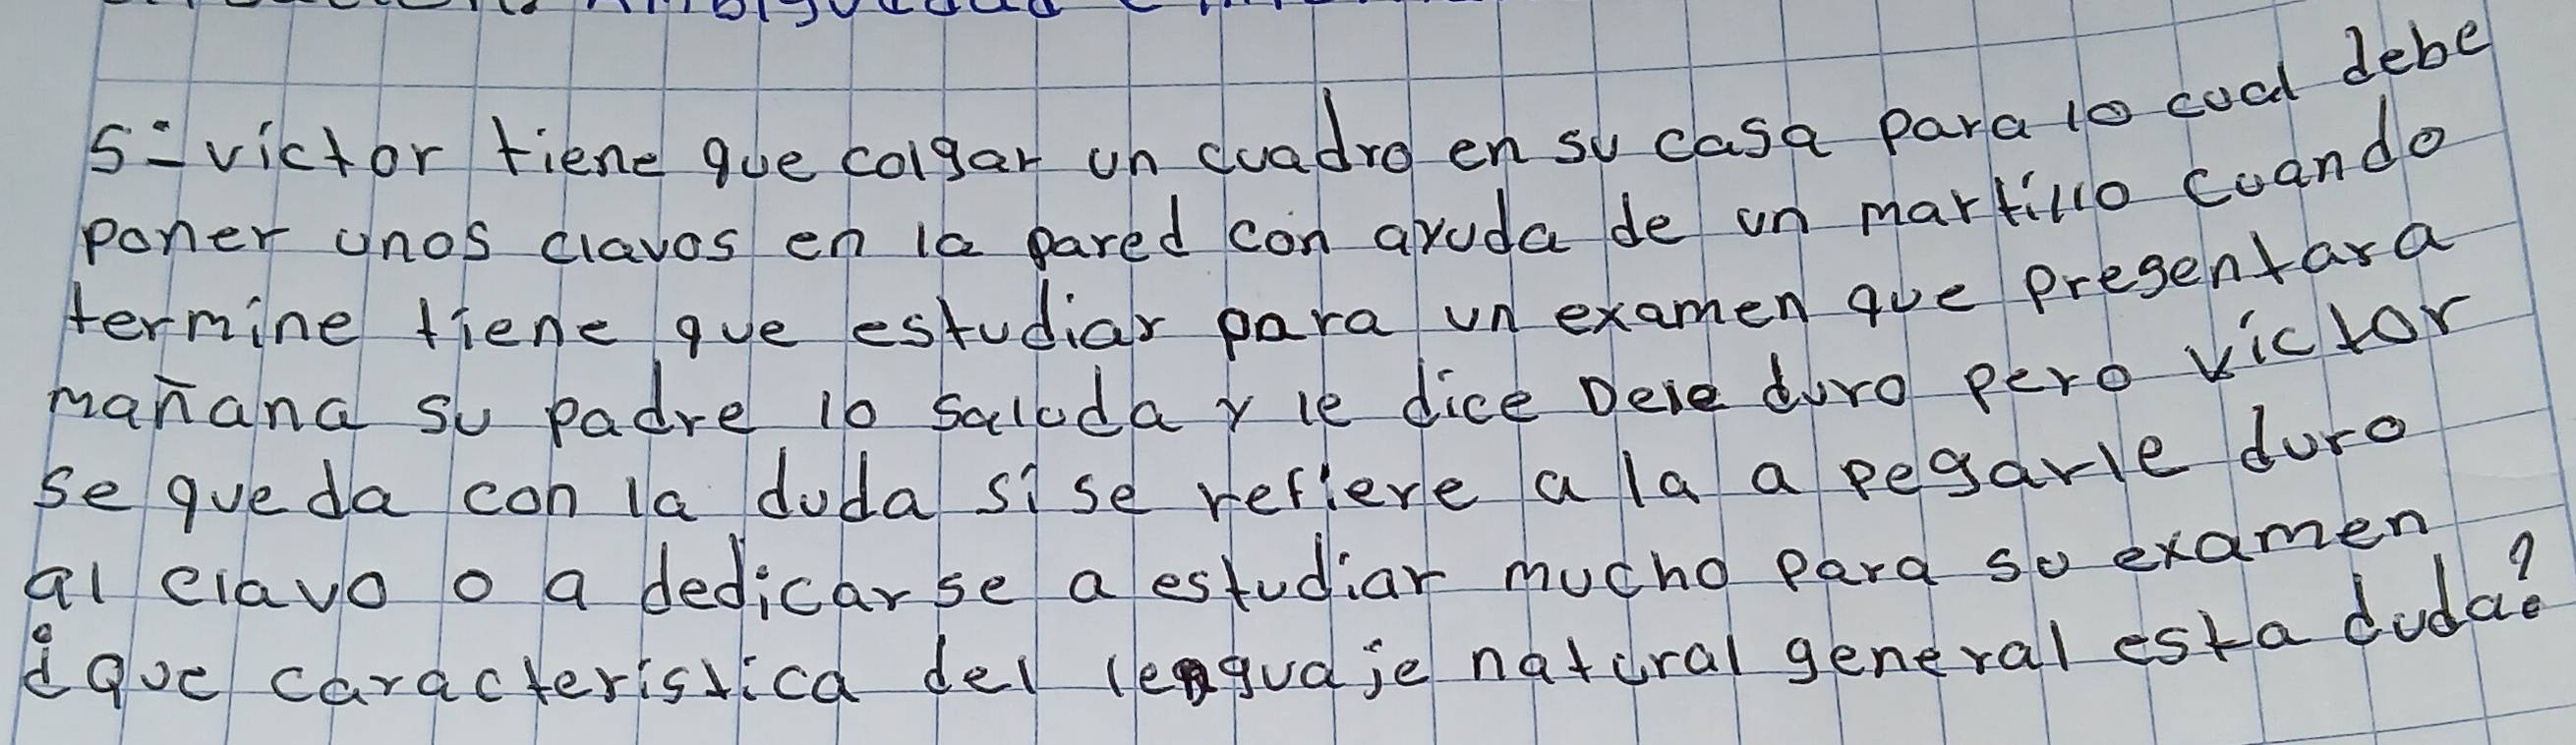 Ambiguedad e
5=víctor tiene que colgar un cuadro en su casa para lo cual debe
poner unos clavos en la pared con ayuda de un martillo cuando
termine tiene que estudiar para un examen que presentara
mañana su padre lo saluda y le dice Dele duro pero víctor
se queda con la duda si se refiere a la a pegarle duro
al clavo o a dedicarse a estudiar mucho para su examen
¿que caracteristica del lenguaje natural general esta duda?